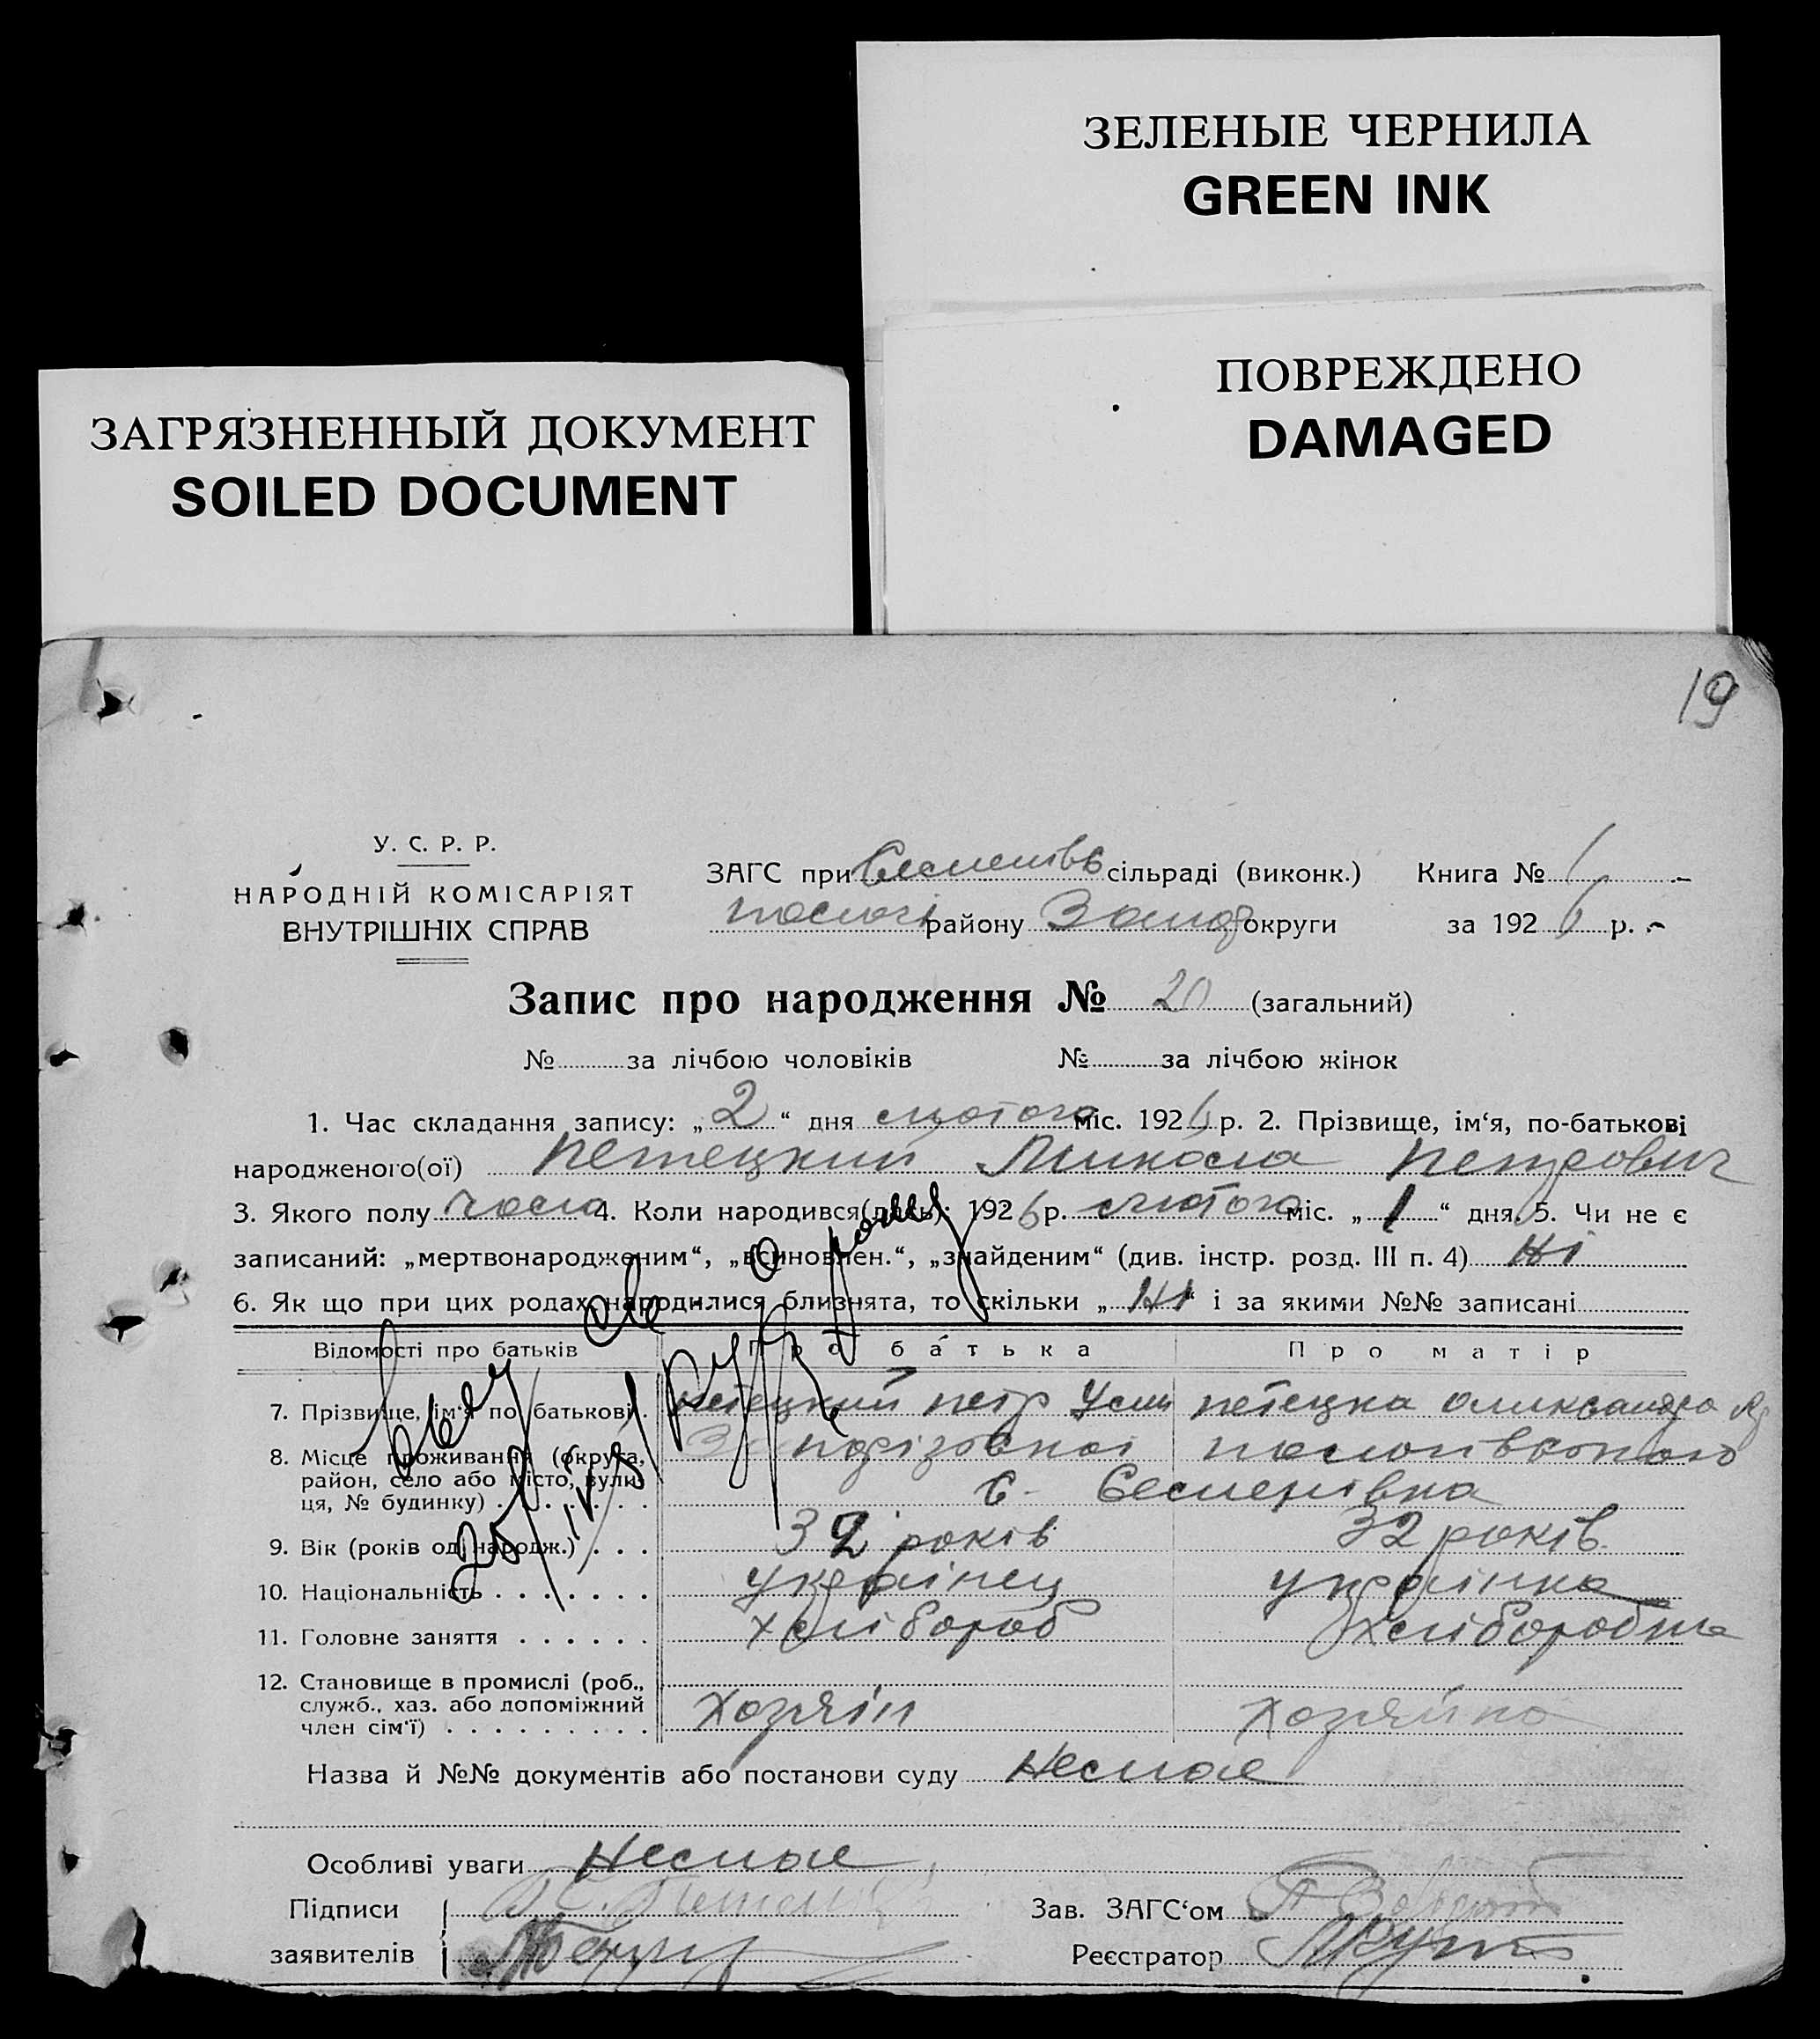 ЗЕЛЕНЫЕ ЧЕРНИЛА
GREEN INK
ПОВРЕЖДЕНО
DAMAGED
ЗАГРЯЗНЕННЫЙ ДОКУМЕНТ
SOILED DOCUMENT
19
У. С. Р. Р.
НАРОДНІЙ КОМІСАРІЯТ
ВНУТРІШНІХ СПРАВ
ЗАГС при сільраді (виконк.) Книга №
району округи за 192 6 р.
Запис про народження № 20 (загальний)
№ за лічбою чоловіків № за лічбою жінок
1. Час складання запису: „ 2 “ дня лютого міс. 192 6 р. 2. Прізвище, ім‘я, по-батькові
народженого(ої) Петецкий Микола Петрович
3. Якого полу чол 4. Коли народився(лась): 192 6 р. лютого міс. „ 1 “ дня. 5. Чи не є
записаний: „мертвонародженим“, „всиновлен.“, „знайденим“ (див. інстр. розд. III п. 4) Ні
6. Як що при цих родах народилися близнята, то скільки „ Ні “ і за якими №№ записані
Відомості про батьків Про батька Про матір
7. Прізвище, ім‘я по батькові . петецкий петр петецка олександра
8. Місце проживання (округа,
район, село або місто, вули-
ця, № будинку) . . . . . . . с.
9. Вік (років од народж.) . . . 32 років 32 років
10. Національність . . . . . . . українец українка
11. Головне заняття . . . . . . хлібороб хліборобка
12. Становище в промислі (роб.,
служб., хаз. або допоміжний
член сім‘ї) . . . . . . . . . Хозяїн хозяйка
Назва й №№ документів або постанови суду Немає
Особливі уваги Немає
Підписи Зав. ЗАГС‘ом
заявителів Реєстратор